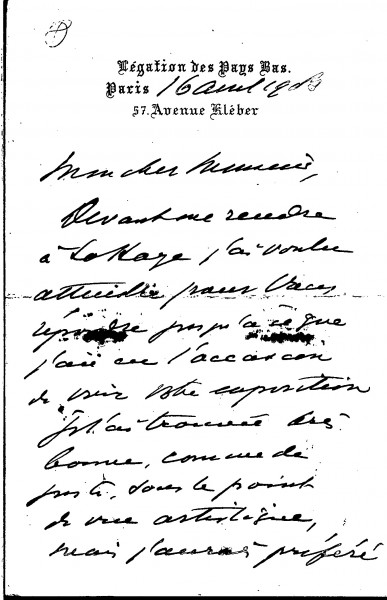 Légation des Pays Bas.
Paris 16 avril 190
57. Avenue Kléber
Mon cher Monsieur,
Devant me rendre
à La Haye j'ai voulu
attendre pour vous
répondre jusqu'à ce que
j'aie eu l'occasion
de voir votre exposition
Je l'ai trouvée très
bonne, comme de
juste, sous le point
de vue artistique,
mais j'aurais préféré